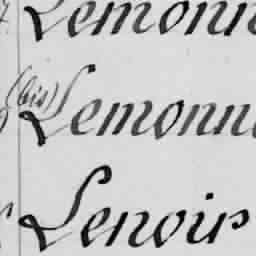 Lemonn
(bis) Lemonn
Lenoir